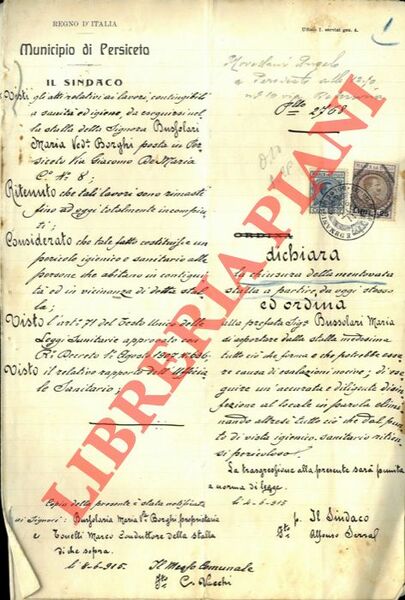 REGNO D'ITALIA
Municipio di Persiceto
IL SINDACO
Visti gli atti relativi ai lavori contingibili
a sanità ed igiene, da eseguirsi nel
la stalla della Signora Bussolari
Maria Ved.ª Borghi posta in Per
siceto Via Giacomo De Maria
C.º N.º 8;
Ritenuto che tali lavori sono rimasti
fino ad oggi totalmente incompiu
ti;
Considerato che tale fatto costituisce un
pericolo igienico e sanitario alle
persone che abitano in contiguità
ed in vicinanza di detta stal
la;
Visto l'art.º 71 del Testo Unico delle
Leggi Sanitarie approvato con
R.º Decreto 1.º Agosto 1907 N.º 636;
Visto il relativo rapporto dell'Ufficia
le Sanitario;
Ufficio I. servizi gen. 4.
1
Angelo
Persiceto alle
N.º 2768
ORDINA
dichiara
la chiusura della mentovata
stalla a partire da oggi stesso
ed ordina
alla prefata Sig.ª Bussolari Maria
di asportare dalla stalla medesima
tutto ciò che forma e che potrebbe esse
re causa di esalazioni nocive; di ese
guire un'accurata e diligente disin
fezione al locale in parola elimi
nando altresì tutto ciò che dal pun
to di vista igienico sanitario ritiensi
pericoloso.
La trasgressione alla presente sarà punita
a norma di legge.
li 4-6-915
p. Il Sindaco
fto Alfonso
Copia della presente è stata notificata
ai Signori: Bussolari Maria V.ª Borghi, proprietaria
e Tonelli Marco Conduttore della stalla
di che sopra.
li 8-6-915. Il Messo Comunale
fto C. Vecchi
LIBRERIA PIANI